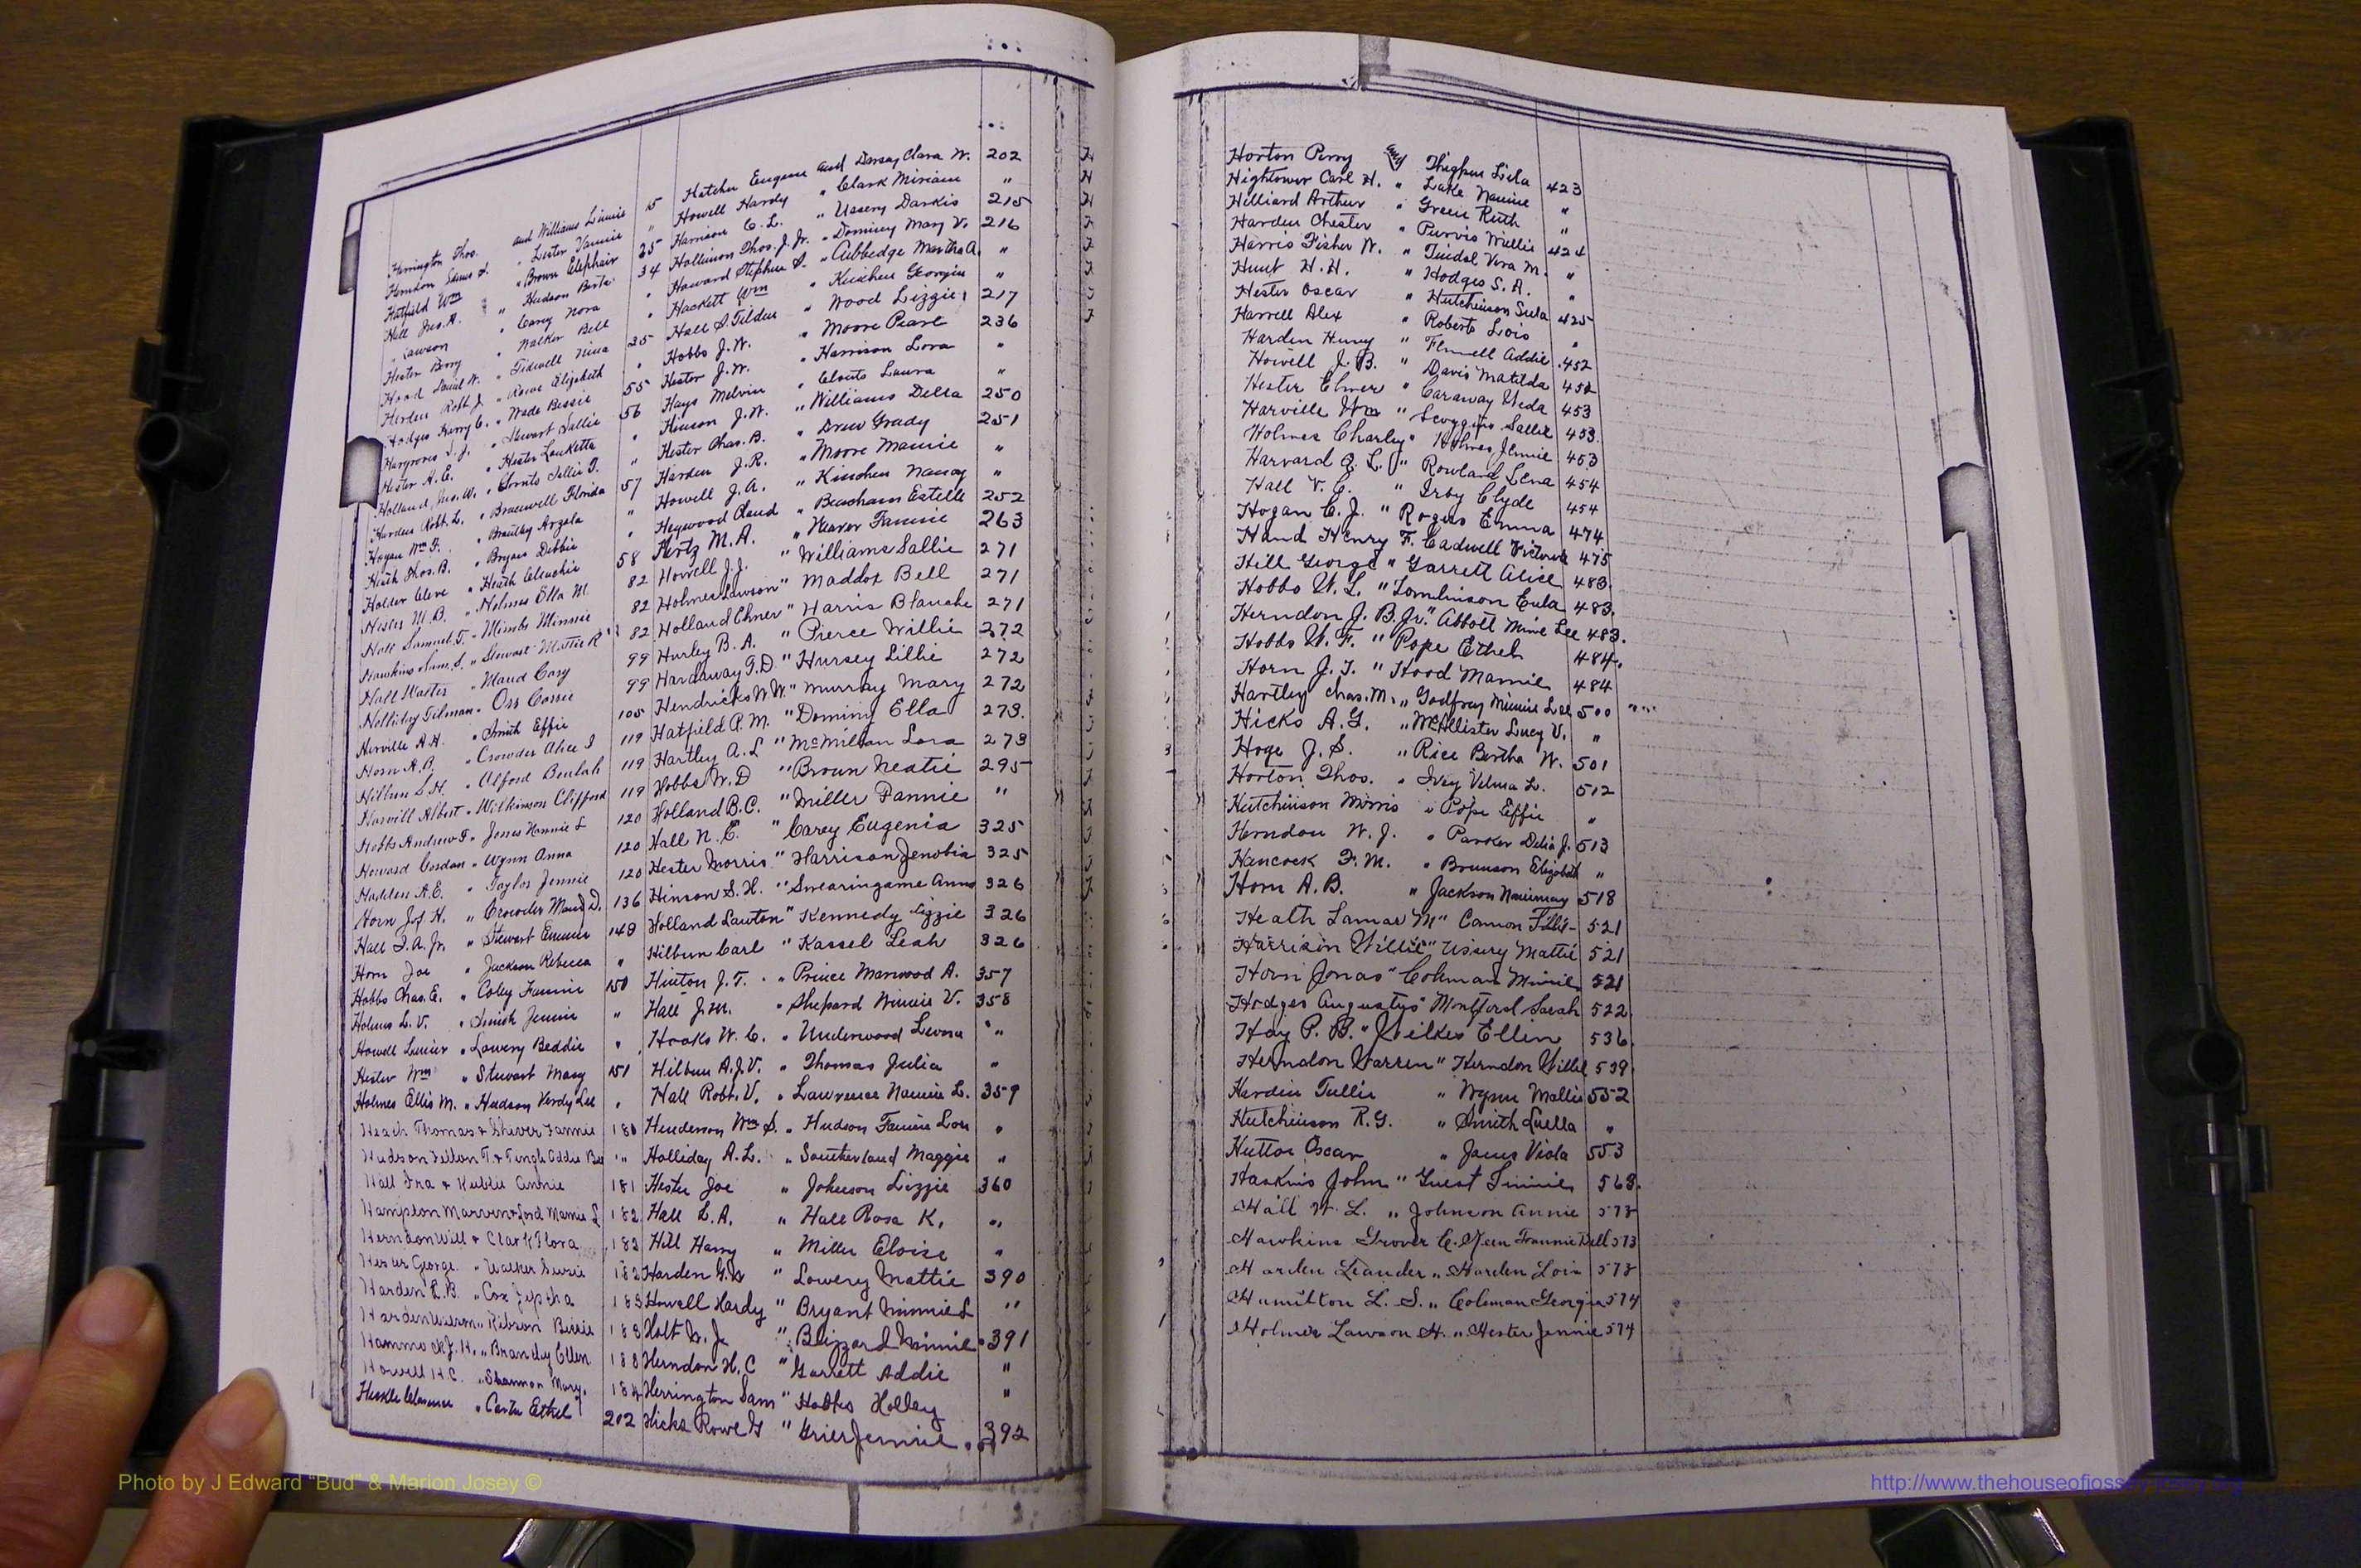 Herrington Thos. and Williams Linnie 15
Herndon James L. " Lester Vannie "
Hatfield Wm " Brown Elephair 25
Hall Jno. A. " Hudson Berta 34
" Lawson " Carey Nora "
Hester Berry " Walker Bell "
Hood Daniel W. " Tidwell Nina 35
Harden Robt. J. " Rowe Elizabeth "
Hodges Harry C. " Wade Bessie 55
Hargroves S. J. " Stewart Sallie 56
Hester A. E. " Hester Louketta "
Holland Jas. W. " Clouts Sellie T. "
Harden Robt. L. " Bracewell Florida 57
Hogan Wm F. " Brantley Argala "
Heath Thos. B. " Bryan Debbie "
Holder Cleve " Heath Cleuchie 58
Hester M. B. " Holmes Ella M. 82
Hall Samuel T. " Mimbs Minnie 82
Hawkins Sam. S. " Stewart Mattie R 82
Hall Walter " Maud Cary 99
Holliday Tilman " Orr Carrie 99
Herville A. H. " Smith Effie 105
Horn A. B. " Crowder Alice I 119
Hilbun L. H. " Alford Beulah 119
Harvill Albert " Wilkinson Clifford 119
Hobbs Andrew F. " Jones Nannie L 120
Howard Cordan " Wynn Anna 120
Hadden A. E. " Taylor Jennie 120
Horn Jos. H. " Crowder Maud D. 136
Hall I. A. Jr. " Stewart Emmie 149
Horn Joe " Jackson Rebecca "
Hobbs Chas. E. " Coley Fannie 150
Holmes L. V. " Smith Jennie "
Howell Lumier " Lowery Beddie "
Hester Wm " Stewart Mary 151
Holmes Ellis M. " Hudson Verdy Lee "
Heach Thomas + Shiver Fannie 180
Hudson Dellon T. + Tingle Addie Bee "
Hall Ira + Kubli Annie 181
Hampton Marvin + Ford Mamie L 182
Herndon Will + Clark Flora 182
Hester George " Walker Susie 182
Harden L. B. " Cox Jepsha 183
Harden Wilson " Ribson Bessie 183
Hammock J. H. " Brandy Ellen 183
Howell H. C. " Shannon Mary 184
Heskle Clarence " Carter Ethel 202
Hatcher Eugene and Dorsey Clara W. 202
Howell Hardy " Clark Miriam "
Harrison C. L. " Ussery Darkis 215
Hollimon Thos. J. Jr. " Dominy Mary V. 216
Howard Stephen S. " Cubbedge Martha A. "
Hackett Wm " Kinchen Georgia "
Hall S. Tilden " Wood Lizzie 217
Hobbs J. W. " Moore Pearl 236
Hester J. W. " Harrison Lora "
Hays Melvin " Clouts Laura "
Hinson J. W. " Williams Della 250
Hester Chas. B. " Drew Grady 251
Harden J. R. " Moore Mamie "
Howell J. A. " Kinchen Nancy "
Heywood Claud " Beacham Estelle 252
Hertz M. A. " Weaver Fannie 263
Howell J. J. " Williams Sallie 271
Holmes Lawson " Maddox Bell 271
Holland Elmer " Harris Blanche 271
Hurley B. A. " Pierce Willie 272
Hardaway G. D. " Hursey Lillie 272
Hendricks W. W. " Murray Mary 272
Hatfield P. M. " Dominy Ella 273.
Hartley A. L " McMillan Lora 273
Hobbs W. D " Brown Neatie 295
Holland B. C. " Miller Fannie "
Hall N. E. " Carey Eugenia 325
Hester Morris " Harrison Zenobia 325
Hinson S. H. " Swearingame Anna 326
Holland Lawton " Kennedy Lizzie 326
Hilbun Carl " Kassel Leah 326
Hinton J. T. " Prince Marwood A. 357
Hall J. M. " Shepard Winnie V. 358
Hooks W. C. " Underwood Leona "
Hilbun A. J. V. " Thomas Julia "
Hall Robt. V. " Lawrence Nannie L. 359
Henderson Wm S. " Hudson Fannie Lou "
Holliday A. L. " Southerland Maggie "
Hester Joe " Johnson Lizzie 360
Hall L. A. " Hall Rosa K. "
Hill Harry " Miller Eloise "
Harden G. W " Lowery Mattie 390
Howell Hardy " Bryant Minnie L "
Holt W. J. " Blizzard Minnie 391
Herndon H. C " Garrett Addie "
Herrington Sam " Hobbs Holley "
Hicks Rowe G " Grier Jennie 392
Horton Perry and Thigpen Lila 423
Hightower Carl H. " Lake Naomie "
Hilliard Arthur " Green Ruth "
Harden Chester " Purvis Willie 424
Harris Fisher W. " Tindol Vera M. "
Hunt H. H. " Hodges S. A. "
Hester Oscar " Hutchinson Sula 425
Harrell Alex " Roberts Lois "
Harden Henry " Flewell Addie 452
Howell J. B. " Davis Matilda 452
Hester Elmer " Caraway Veda 453
Harville Wm " Scoggins Sallie 453.
Holmes Charley " Holmes Jennie 453
Harvard Q. L. " Rowland Lena 454
Hall V. C. " Irby Clyde 454
Hogan C. J. " Rogers Emma 474
Hand Henry F. Cadwell Victoria 475
Hill George " Garrett Alice 483.
Hobbs W. L. " Tomlinson Eula 483.
Herndon J. B. Jr. " Abbott Mine Lee 483.
Hobbs W. F. " Pope Ethel 484.
Horn J. T. " Hood Mamie 484
Hartley Chas. M. " Godfrey Minnie Lee 500
Hicks A. G. " McAllister Lucy V. "
Hoge J. S. " Rice Bertha W. 501
Horton Thos. " Ivey Velma L. 512
Hutchinson Morris " Pope Effie "
Herndon W. J. " Parker Delia J. 513
Hancock F. M. " Brunson Elizabeth "
Horn A. B. " Jackson 518
Heath Lamar M " Cannon 521
Harrison Willie " Ussery Mattie 521
Horn Jonas " Coleman Minnie 521
Hodges Augustus " Montford Sarah 522
Hay P. B. " Wilkes Ellin 536.
Herndon Warren " Herndon Willie 539
Hardin Tullie " Wynn Mollie 552
Hutchinson R. G. " Smith Luella "
Hutton Oscar " James Viola 553
Haskins John " Guest Linnie 563.
Hall W. L. " Johnson Annie 573
Hawkins Grover C. Keen Frannie Dell 573
Harden Leander " Harden Lois 573
Hamilton L. S. " Coleman Georgia 574
Holmes Lawson H. " Hester Jennie 574
Photo by J Edward "Bud" & Marion Josey ©
http://www.thehouseofjossey-josey.org